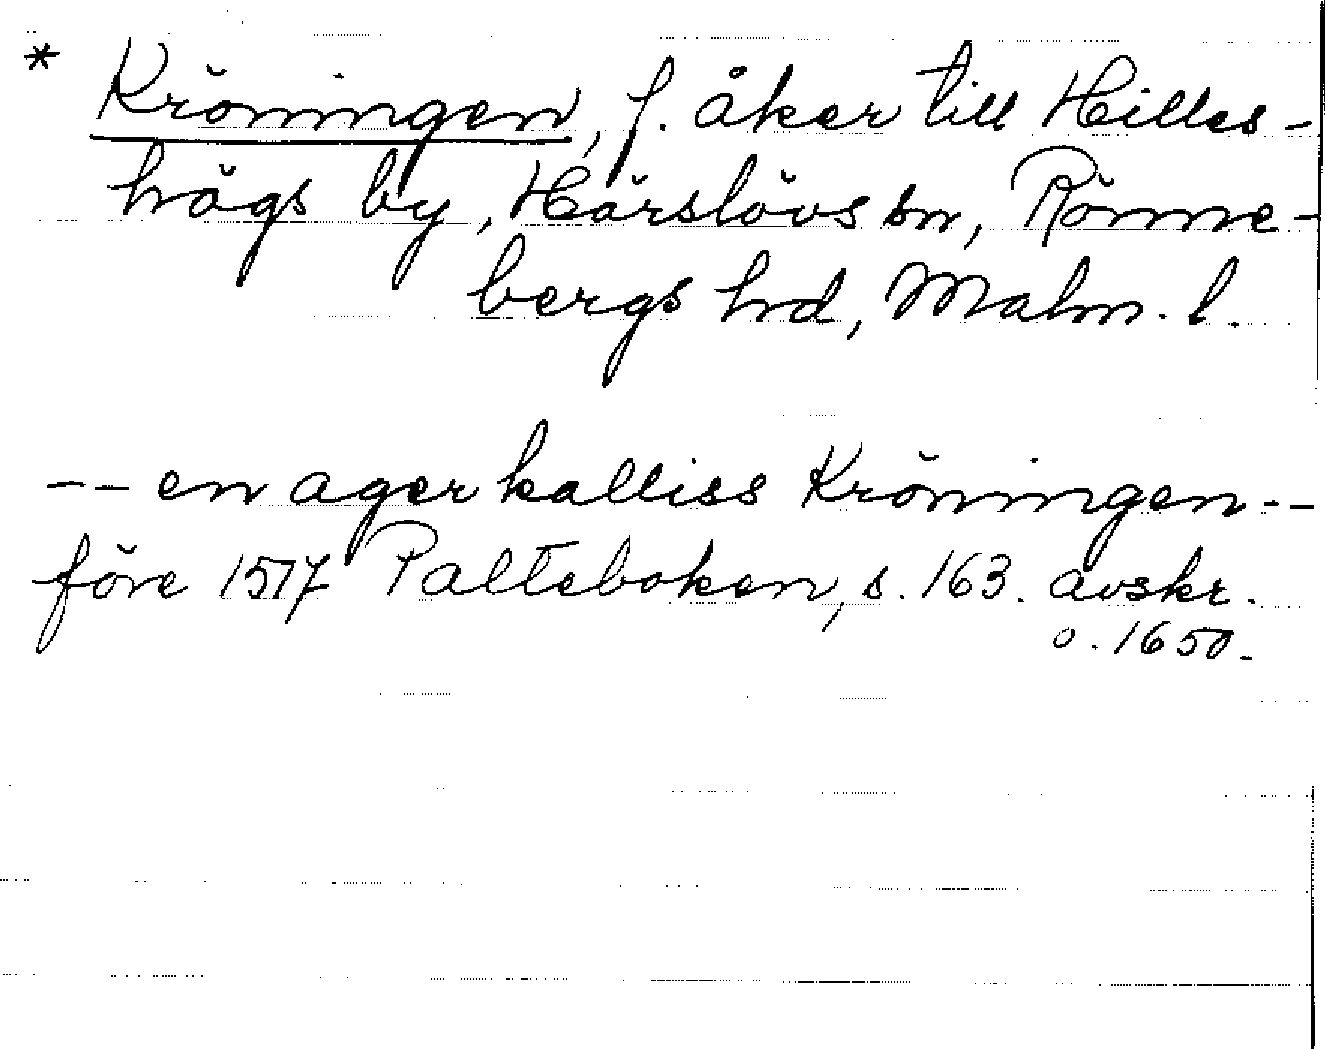 * Kröningen, f. åker till Hilles-
högs by, Härslövs sn, Rönne-
bergs hd, Malm. l.
-- en ager kalliss Kröningen --
före 1517 Palteboken, s. 163. avskr.
o. 1650.